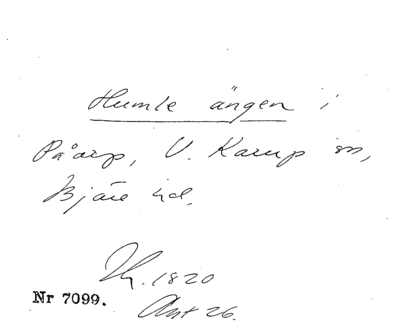 Humle ängen i
Påarp, V. Karup sn,
Bjäre hd.
Th. 1820
Nr 7099.
Ant 26.